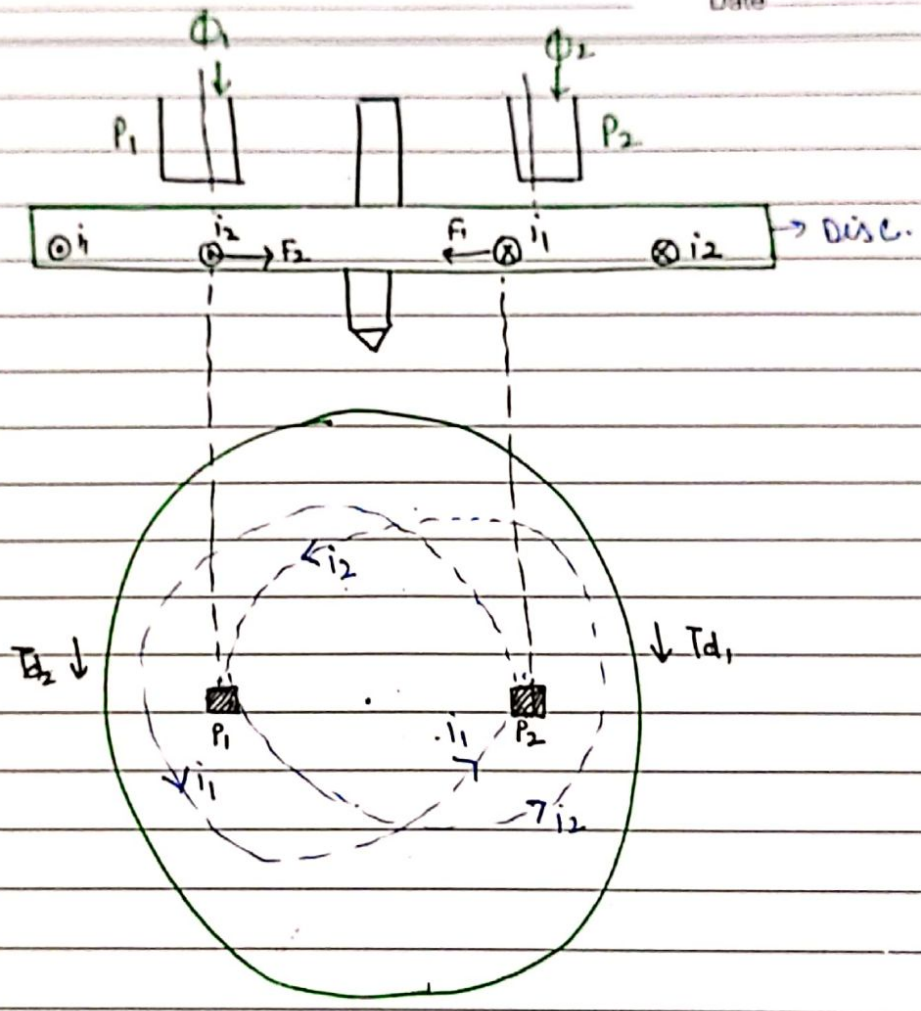 Date
Φ₁
Φ₂
P₁
P₂
i₁
i₂
F₂
F₁
i₁
i₂
Disc.
i₂
Td₂
Td₁
P₁
i₁
P₂
i₁
i₂